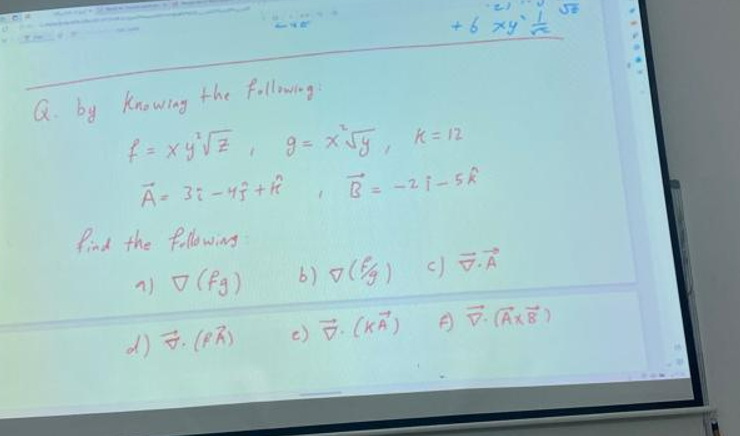 +6 xy² 1/√z
Q. by Knowing the following:
f = xy²√z , g = x²√y , K = 12
A⃗ = 3î - 4ĵ + k̂ , B⃗ = -2î - 5k̂
find the following:
a) ∇(fg) b) ∇(f/g) c) ∇⃗.A⃗
d) ∇⃗.(fA⃗) e) ∇⃗.(KA⃗) f) ∇⃗.(A⃗×B⃗)